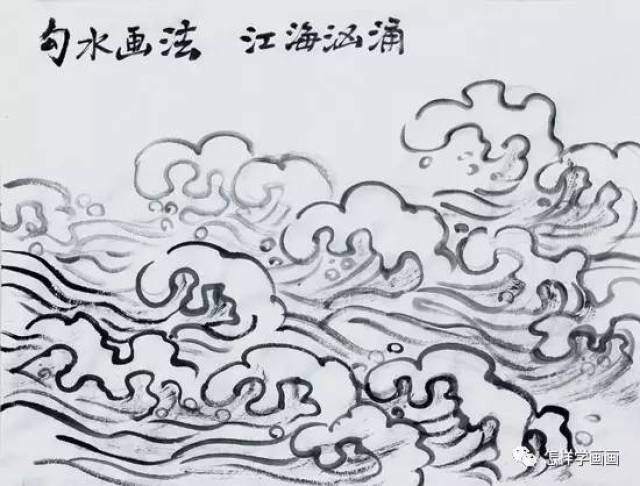 勾水画法 江海汹涌
怎样学画画